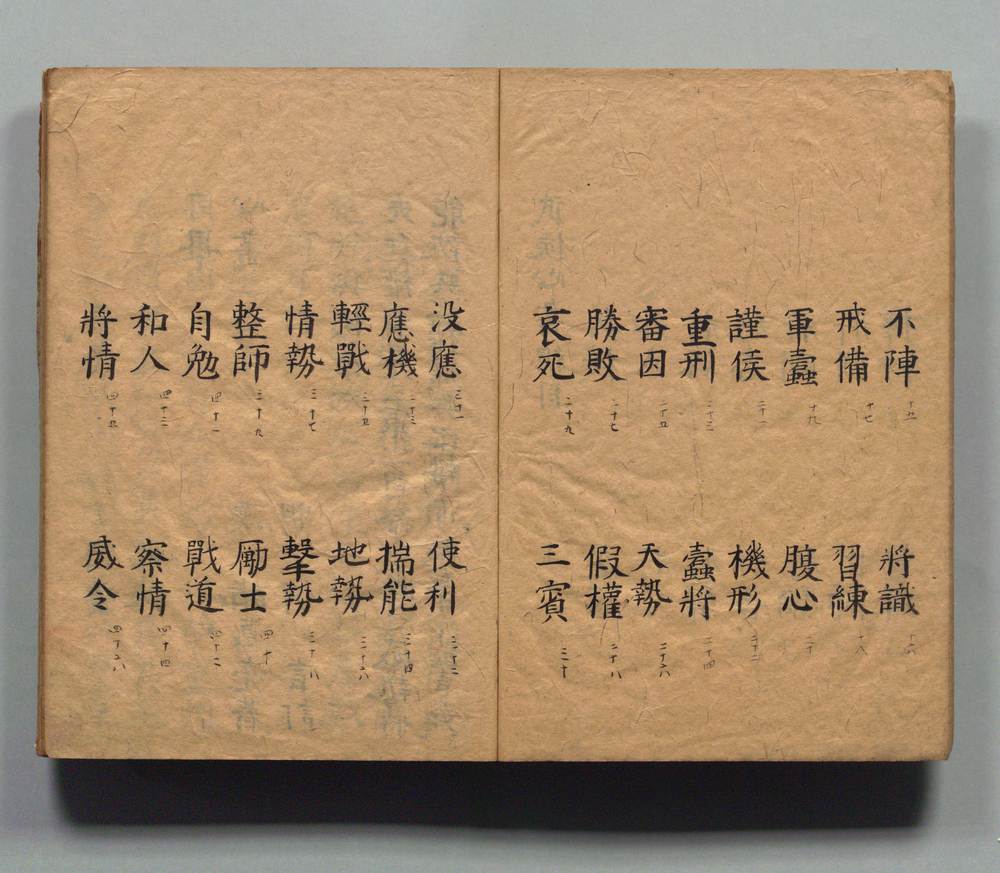 不陣 十五
將識 十六
戒備 十七
習練 十八
軍蠹 十九
腹心 二十
謹侯 二十一
機形 二十二
重刑 二十三
蠹將 二十四
審因 二十五
天勢 二十六
勝敗 二十七
假權 二十八
哀死 二十九
三賓 三十
没應 三十一
使利 三十二
應機 三十三
揣能 三十四
輕戰 三十五
地勢 三十六
情勢 三十七
擊勢 三十八
整師 三十九
勵士 四十
自勉 四十一
戰道 四十二
和人 四十三
察情 四十四
將情 四十五
威令 四十六